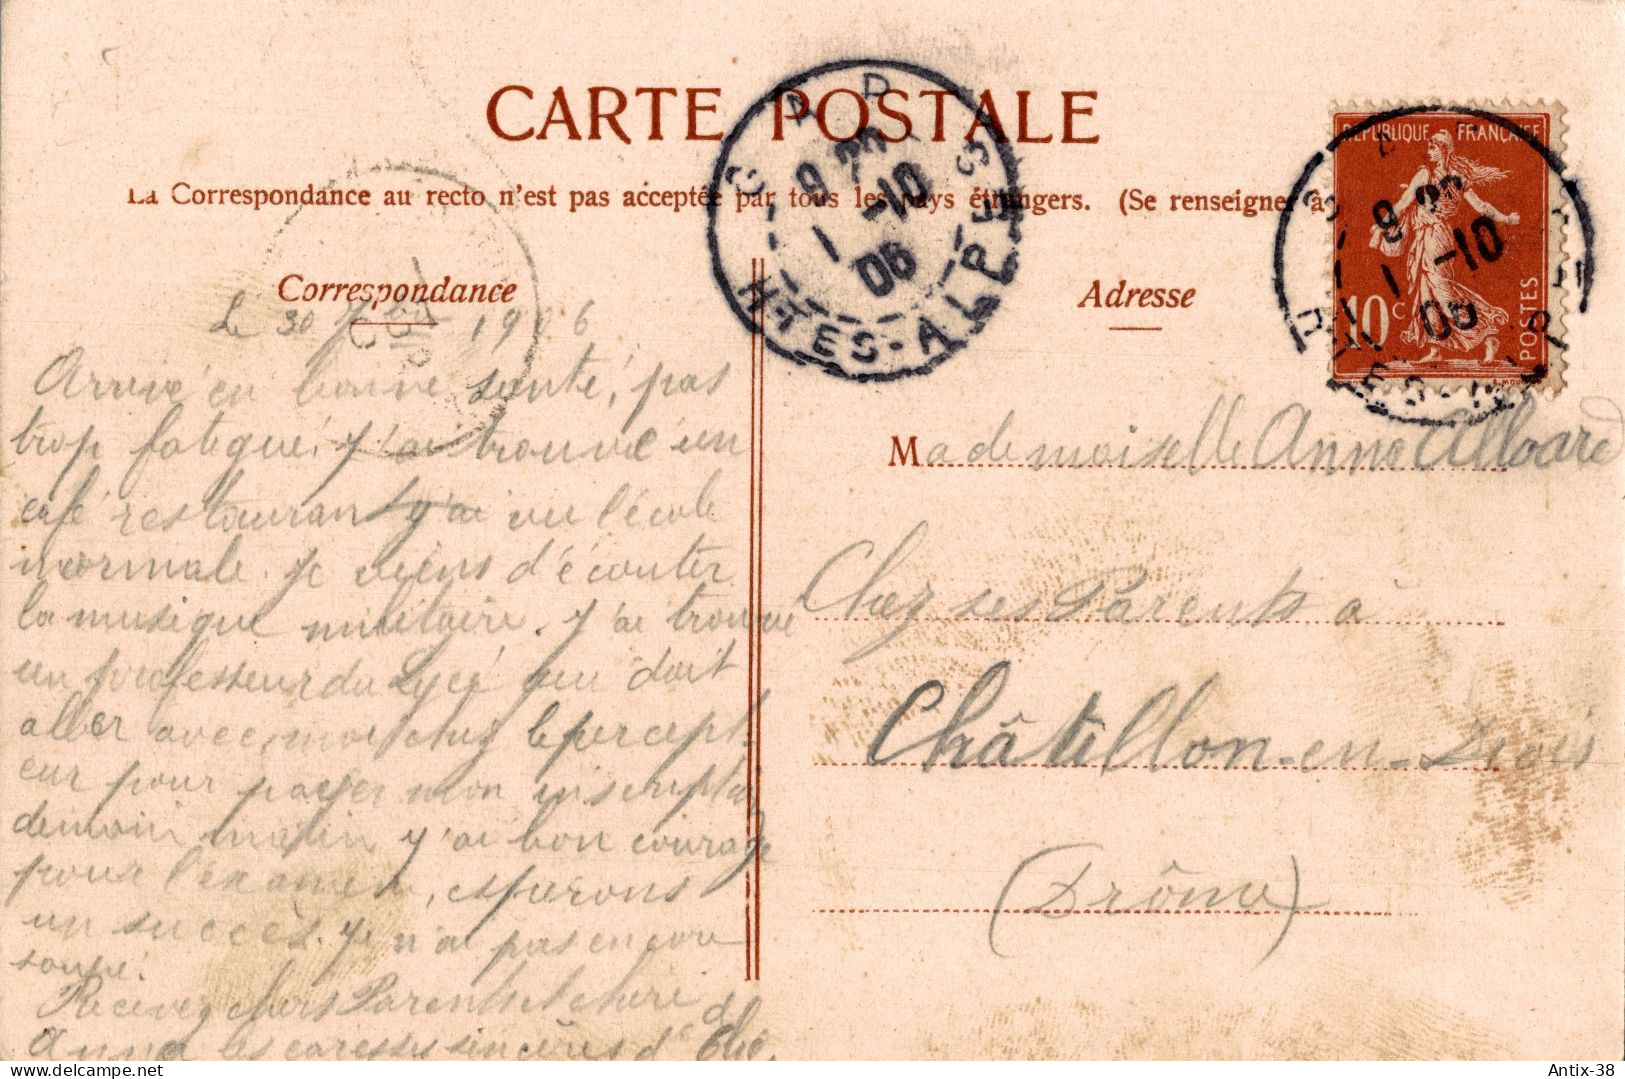 CARTE POSTALE
La Correspondance au recto n'est pas acceptée par tous les pays étrangers. (Se renseigner à
Correspondance
Adresse
RÉPUBLIQUE FRANÇAISE
10 c
POSTES
GAP
9 20
1 -10
06
HTES-ALPES
9 20
1 -10
06
Le 30 7bre 1906
Arrivé en bonne santé, pas
trop fatigué. J'ai trouvé un
café restaurant j'ai vu l'école
normale. Je viens d'écouter
la musique militaire. J'ai trouvé
un professeur du Lycé qui doit
aller avec moi chez le percept-
eur pour payer mon inscription
demain matin j'ai bon courage
pour l'éxamen, espérons
un succès. Je n'ai pas encore
soupé.
Recevez chers Parents et chère
Anna les caresses sincères d'
Mademoiselle Anna Alloard
Chez ses Parents à
Châtillon-en-Diois
(Drôme)
Antix-38